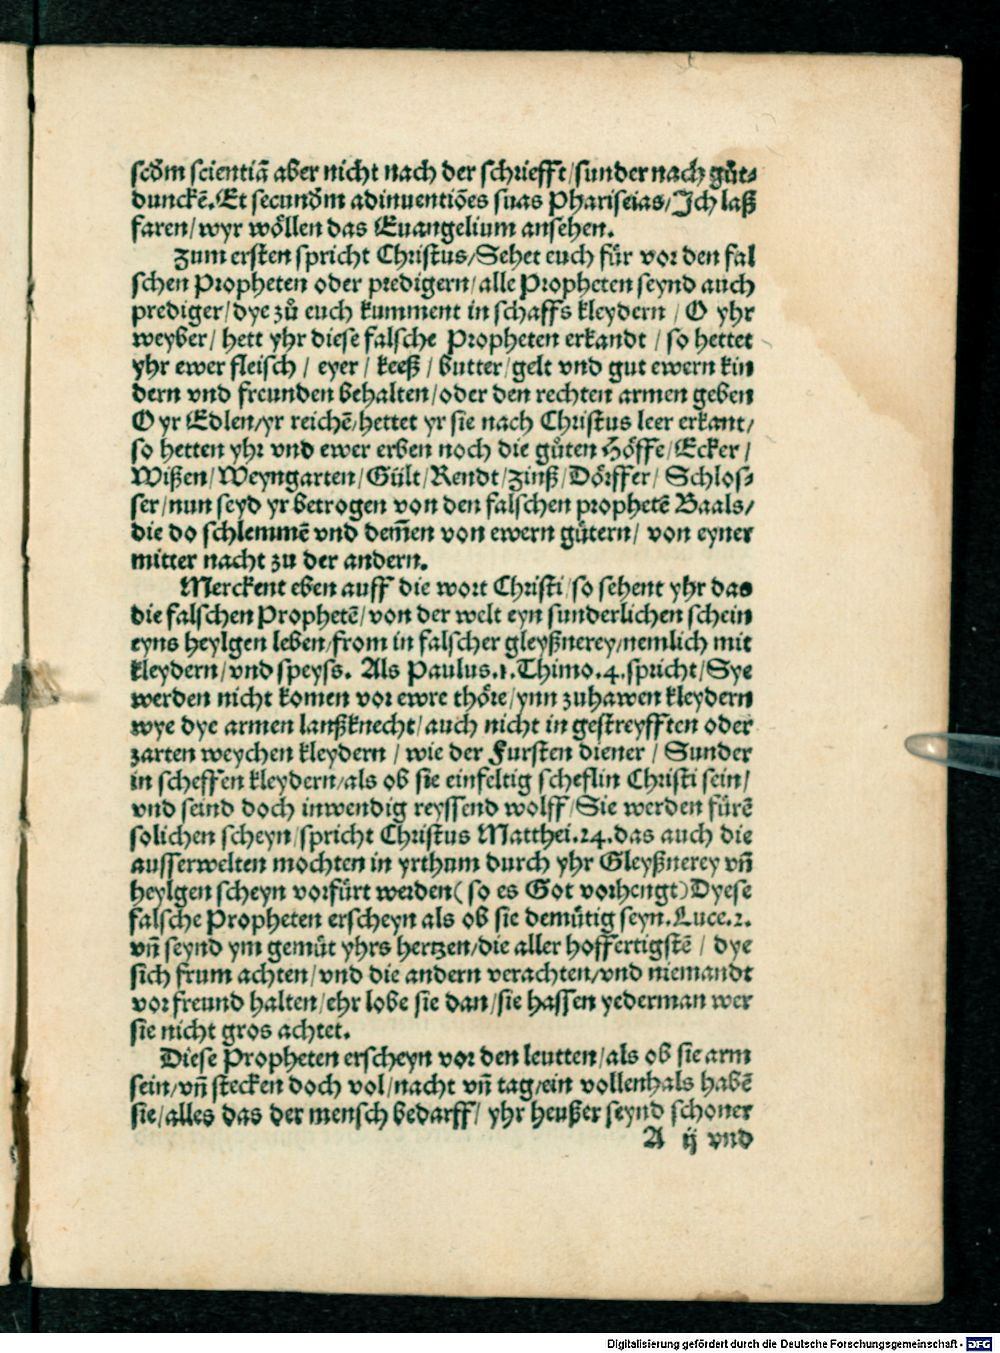 scđm scientiā aber nicht nach der schriefft/sunder nach gůt⸗
dunckē. Et secundm adinuentiōes suas Phariseias/Ich laß
faren/wyr wöllen das Euangelium ansehen.
Zum ersten spricht Christus/Sehet euch für vor den fal
schen Propheten oder predigern/alle Propheten seynd auch
prediger/dye zů euch kumment in schaffs kleydern / O yhr
weyber/ hett yhr diese falsche Propheten erkandt / so hettet
yhr ewer fleisch / eyer / keeß / butter/gelt vnd gut ewern kin
dern vnd freunden behalten/oder den rechten armen geben
O yr Edlen/yr reichē/hettet yr sie nach Christus leer erkant/
so hetten yhr vnd ewer erben noch die gůten Höffe/Ecker/
Wißen/Weyngarten/Gült/Rendt/Zinß/Dörffer/ Schlos⸗
ser/nun seyd yr betrogen von den falschen prophetē Baals/
die do schlemmē vnd dem̄en von ewern gůtern/ von eyner
mitter nacht zu der andern.
Merckent eben auff die wort Christi/so sehent yhr das
die falschen Prophetē/von der welt eyn sunderlichen schein
eyns heylgen leben/from in falscher gleyßnerey/nemlich mit
kleydern/vnd speyss. Als Paulus.1.Thimo.4.spricht/Sye
werden nicht komen vor ewre thöre/ynn zuhawen kleydern
wye dye armen lanßknecht/auch nicht in gestreyfften oder
zarten weychen kleydern / wie der Fursten diener / Sunder
in scheffen kleydern/als ob sie einfeltig scheflin Christi sein/
vnd seind doch inwendig reyssend wolff/Sie werden fürē
solichen scheyn/spricht Christus Matthei.24.das auch die
ausserwelten mochten in yrthum durch yhr Gleyßnerey vn̄
heylgen scheyn vorfürt werden(so es Got vorhengt)Dyese
falsche Propheten erscheyn als ob sie demütig seyn.Luce.2.
vn̄ seynd ym gemüt yhrs hertzen/die aller hoffertigstē / dye
sich frum achten/vnd die andern verachten/vnd niemandt
vor freund halten/ehr lobe sie dan/sie hassen yederman wer
sie nicht gros achtet.
Diese Propheten erscheyn vor den leutten/als ob sie arm
sein/vn̄ stecken doch vol/nacht vn̄ tag/ein vollenhals habē
sie/alles das der mensch bedarff/ yhr heußer seynd schoner
A ij vnd
Digitalisierung gefördert durch die Deutsche Forschungsgemeinschaft - DFG